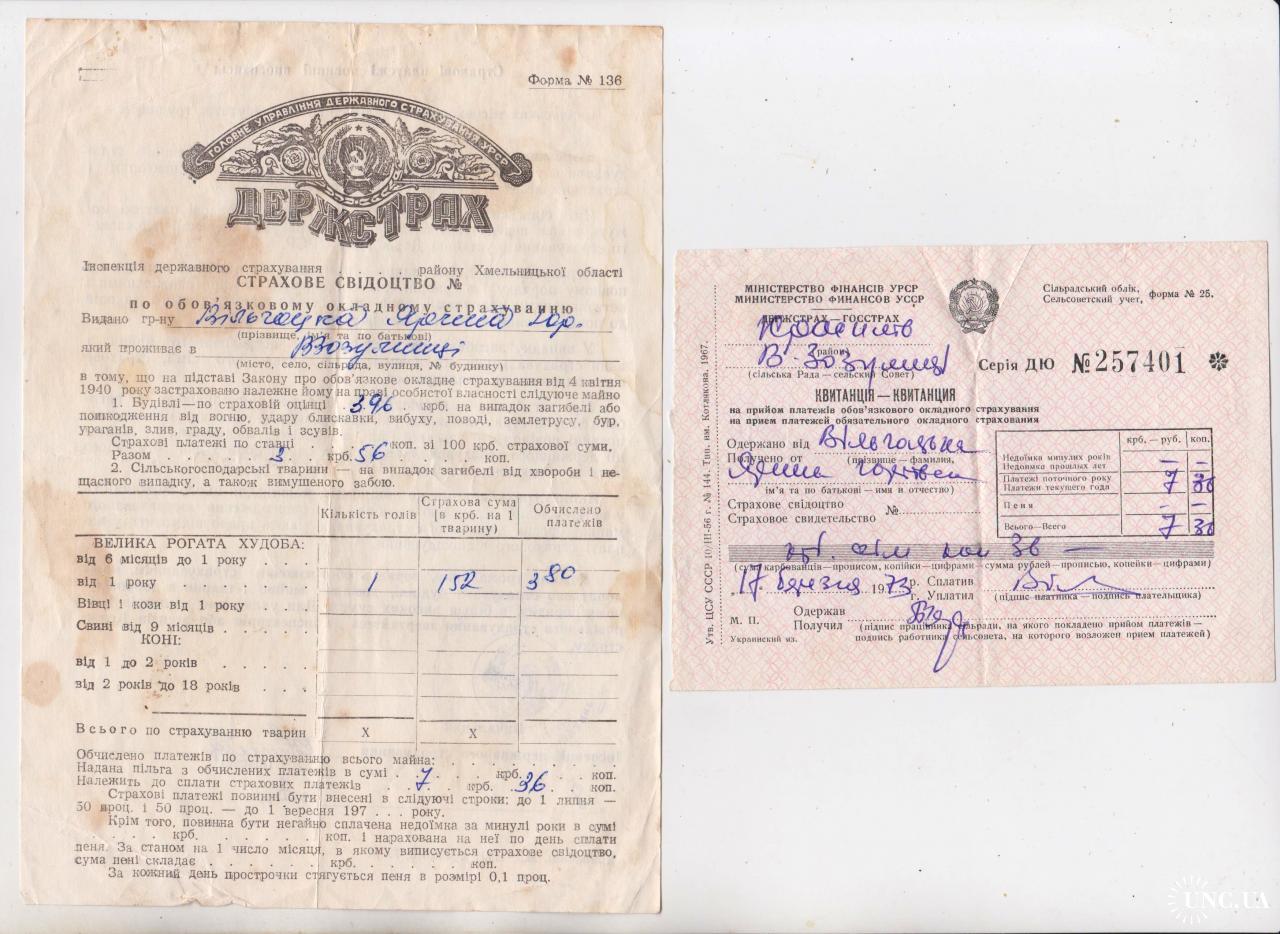 Форма № 136
ГОЛОВНЕ УПРАВЛІННЯ ДЕРЖАВНОГО СТРАХУВАННЯ УРСР
ДЕРЖСТРАХ
Інспекція державного страхування . . . . . району Хмельницької області
СТРАХОВЕ СВІДОЦТВО №
по обов'язковому окладному страхуванню
Видано гр-ну
(прізвище, ім'я та по батькові)
який проживає в
(місто, село, сільрада, вулиця, № будинку)
в тому, що на підставі Закону про обов'язкове окладне страхування від 4 квітня
1940 року застраховано належне йому на праві особистої власності слідуюче майно
1. Будівлі—по страховій оцінці 396 крб. на випадок загибелі або
пошкодження від вогню, удару блискавки, вибуху, поводі, землетрусу, бур,
ураганів, злив, граду, обвалів і зсувів.
Страхові платежі по ставці . . . . . коп. зі 100 крб. страхової суми.
Разом . . . . 3 . . . крб. 56 . . . . . коп.
2. Сільськогосподарські тварини — на випадок загибелі від хвороби і не-
щасного випадку, а також вимушеного забою.
Кількість голів
Страхова сума (в крб. на 1 тварину)
Обчислено платежів
ВЕЛИКА РОГАТА ХУДОБА:
від 6 місяців до 1 року . . .
від 1 року . . . . . . 1 152 3 80
Вівці і кози від 1 року . . .
Свині від 9 місяців . . . .
КОНІ:
від 1 до 2 років . . . . .
від 2 років до 18 років . . .
Всього по страхуванню тварин X X
Обчислено платежів по страхуванню всього майна: . . . . . .
Надана пільга з обчислених платежів в сумі . 7 . . крб. . . . коп.
Належить до сплати страхових платежів . 7 . . крб. 36 . . коп.
Страхові платежі повинні бути внесені в слідуючі строки: до 1 липня —
50 проц. і 50 проц. — до 1 вересня 197 . . . року.
Крім того, повинна бути негайно сплачена недоїмка за минулі роки в сумі
. . . . . крб. . . . . . . . коп. і нарахована на неї по день сплати
пеня. За станом на 1 число місяця, в якому виписується страхове свідоцтво,
сума пені складає . . . . . . . крб. . . . . . . коп.
За кожний день прострочки стягується пеня в розмірі 0,1 проц.
МІНІСТЕРСТВО ФІНАНСІВ УРСР
МИНИСТЕРСТВО ФИНАНСОВ УССР
ДЕРЖСТРАХ—ГОССТРАХ
Сільрадський облік,
Сельсоветский учет, форма № 25.
(район)
(сільська Рада—сельский Совет)
Серія ДЮ № 257401
КВИТАНЦІЯ—КВИТАНЦИЯ
на прийом платежів обов'язкового окладного страхування
на прием платежей обязательного окладного страхования
Одержано від
Получено от (прізвище—фамилия,
ім'я та по батькові—имя и отчество)
Страхове свідоцтво
Страховое свидетельство №
крб.—руб. коп.
Недоїмка минулих років
Недоимка прошлых лет — —
Платежі поточного року
Платежи текущего года 7 36
Пеня — —
Всього—Всего 7 36
(сума карбованців—прописом, копійки—цифрами—сумма рублей—прописью, копейки—цифрами)
17 березня 1973 р. Сплатив
г. Уплатил
(підпис платника—подпись плательщика)
М. П.
Одержав
Получил
(підпис працівника сільради, на якого покладено прийом платежів—
подпись работника сельсовета, на которого возложен прием платежей)
Украинский из.
Утв. ЦСУ СССР 10/III-56 г. № 144. Тип. им. Котлякова. 1967.
UNC.UA